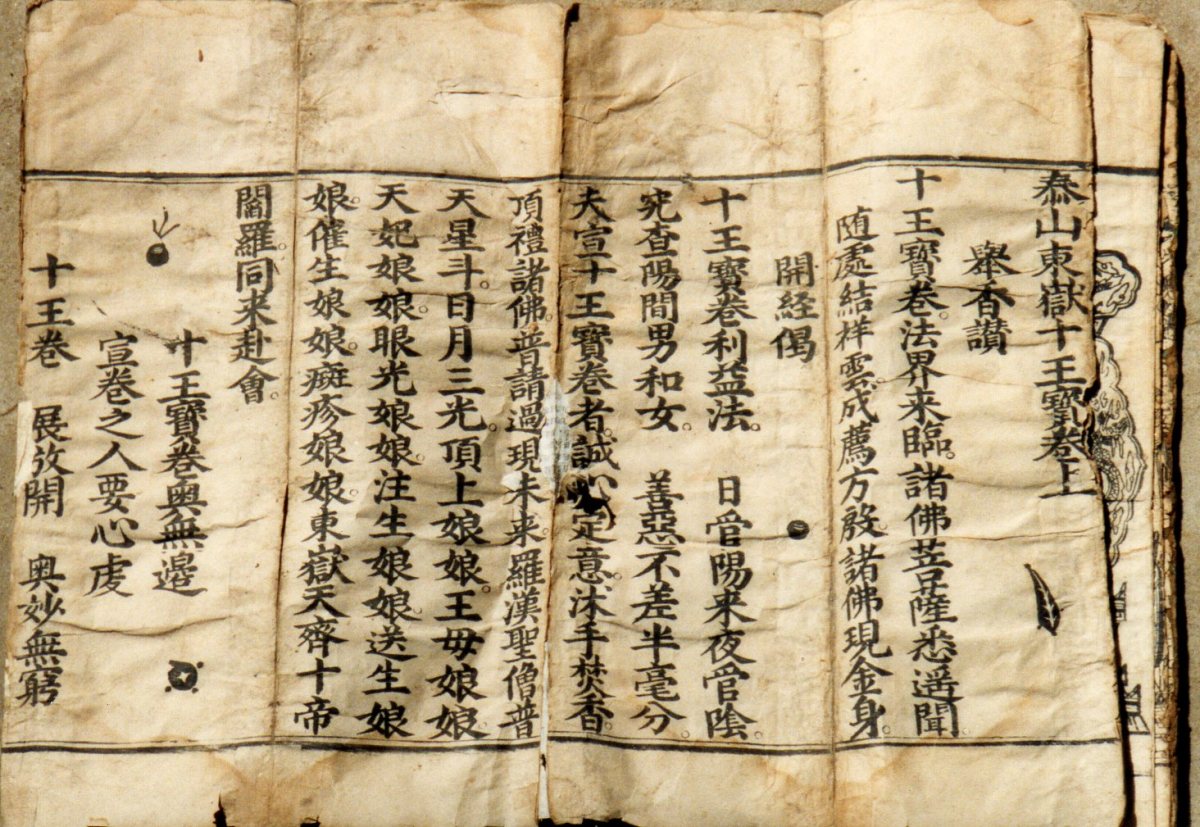 泰山東嶽十王寶卷上
舉香讃
十王寶卷。法界来臨。諸佛菩薩悉遥聞
随處結祥雲。成薦方殷。諸佛現金身。
開経偈
十王寶卷利益法。 日管陽来夜管陰
究查陽間男和女。 善惡不差半毫分
夫宣十王寶卷者。誠心定意。沐手焚香。
頂禮諸佛。普請過現未来羅漢聖僧普
天星斗。日月三光。頂上娘娘。王母娘娘。
天妃娘娘。眼光娘娘。注生娘娘。送生娘
娘。催生娘娘。癍疹娘娘。東嶽天齊十帝
閻羅。同来赴會。
十王寶卷奥無邊
宣卷之人要心虔
十王卷 展放開 奥妙無窮